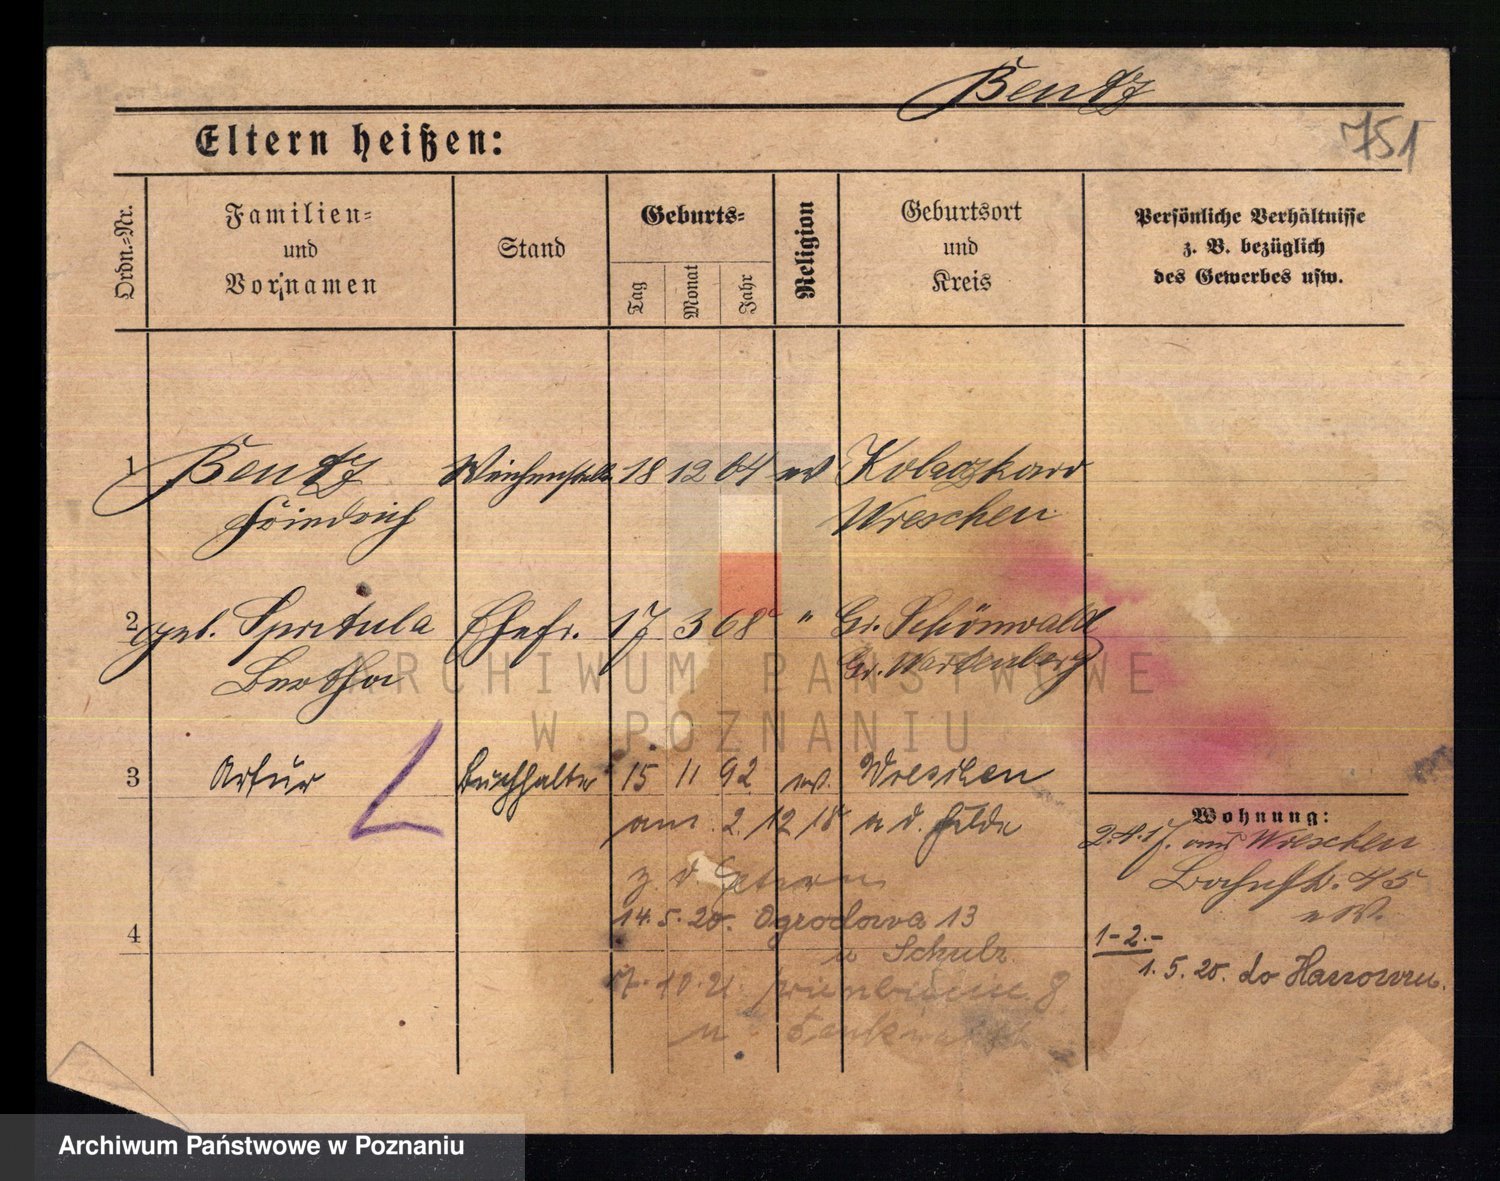 Bentz
751
Eltern heißen:
Ordn.-Nr.
Familien-
und
Vornamen
Stand
Geburts-
Tag
Monat
Jahr
Religion
Geburtsort
und
Kreis
Persönliche Verhältnisse
z. B. bezüglich
des Gewerbes usw.
1 Bentz Weichenstell. 18 12 64 ev Kolaczkowo
Friedrich Wreschen
2 geb. Spretula Ehefr. 17 3 68 " Gr. Schönwald
Bertha Gr. Wartenberg
3 Artur Buchhalter 15 11 92 ev. Wreschen
am 2. 12 18 a d. Felde
z. d. Eltern
4
14.5.20. Ogrodowa 13
u Schulz
7.10.21. 8
u
Wohnung:
2.4.17. aus Wreschen
Bahnhfstr. 45
1-2.-
1.5.20. do
ARCHIWUM PAŃSTWOWE
W POZNANIU
Archiwum Państwowe w Poznaniu